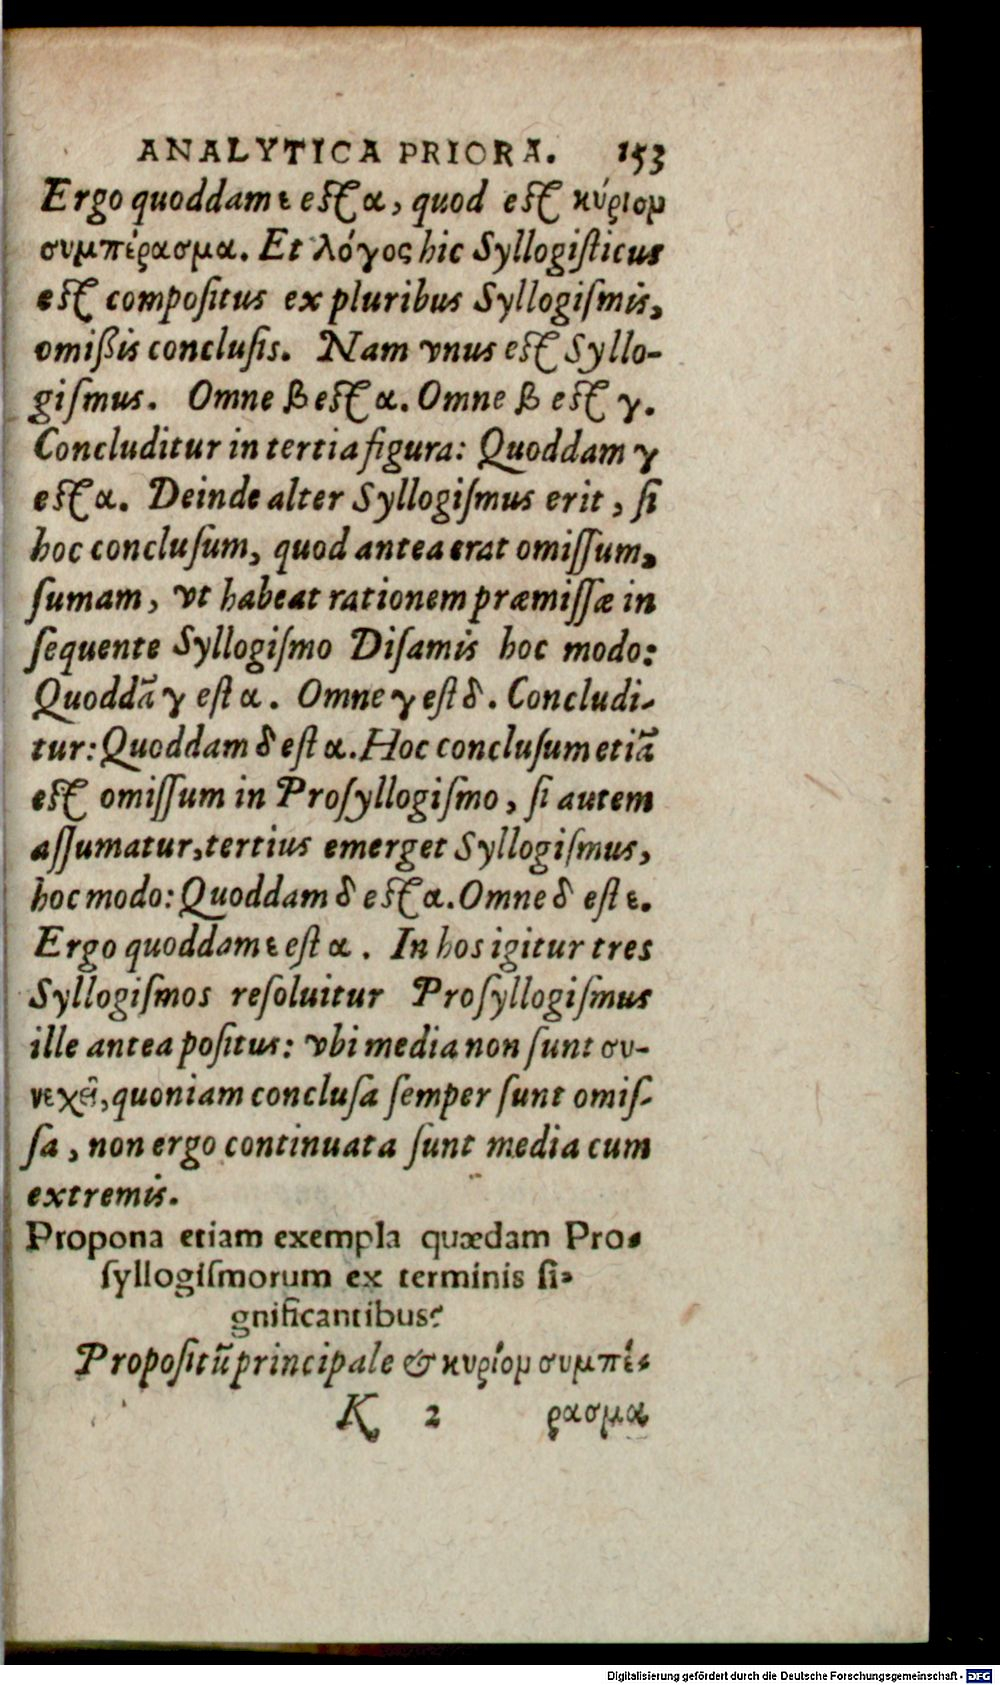 ANALYTICA PRIORA. 153
Ergo quoddam ε est α, quod est κύριομ
συμπέρασμα. Et λόγος hic Syllogiſticus
est compoſitus ex pluribus Syllogiſmis,
omißis concluſis. Nam vnus est Syllo-
giſmus. Omne β est α. Omne β est γ.
Concluditur in tertia figura: Quoddam γ
est α. Deinde alter Syllogiſmus erit, ſi
hoc concluſum, quod antea erat omiſſum,
ſumam, vt habeat rationem præmiſſæ in
ſequente Syllogiſmo Diſamis hoc modo:
Quoddã γ eſt α. Omne γ eſt δ. Concludi-
tur: Quoddam δ eſt α. Hoc concluſum etiã
est omiſſum in Proſyllogiſmo, ſi autem
aſſumatur, tertius emerget Syllogiſmus,
hoc modo: Quoddam δ est α. Omne δ eſt ε.
Ergo quoddam ε eſt α. In hos igitur tres
Syllogiſmos reſoluitur Proſyllogiſmus
ille antea poſitus: vbi media non ſunt συ-
νεχῆ, quoniam concluſa ſemper ſunt omiſ-
ſa, non ergo continuata ſunt media cum
extremis.
Propona etiam exempla quædam Pro-
ſyllogiſmorum ex terminis ſi-
gnificantibus?
Propoſitũ principale & κυρίομ συμπέ-
K 2 ρασμα
Digitalisierung gefördert durch die Deutsche Forschungsgemeinschaft - DFG